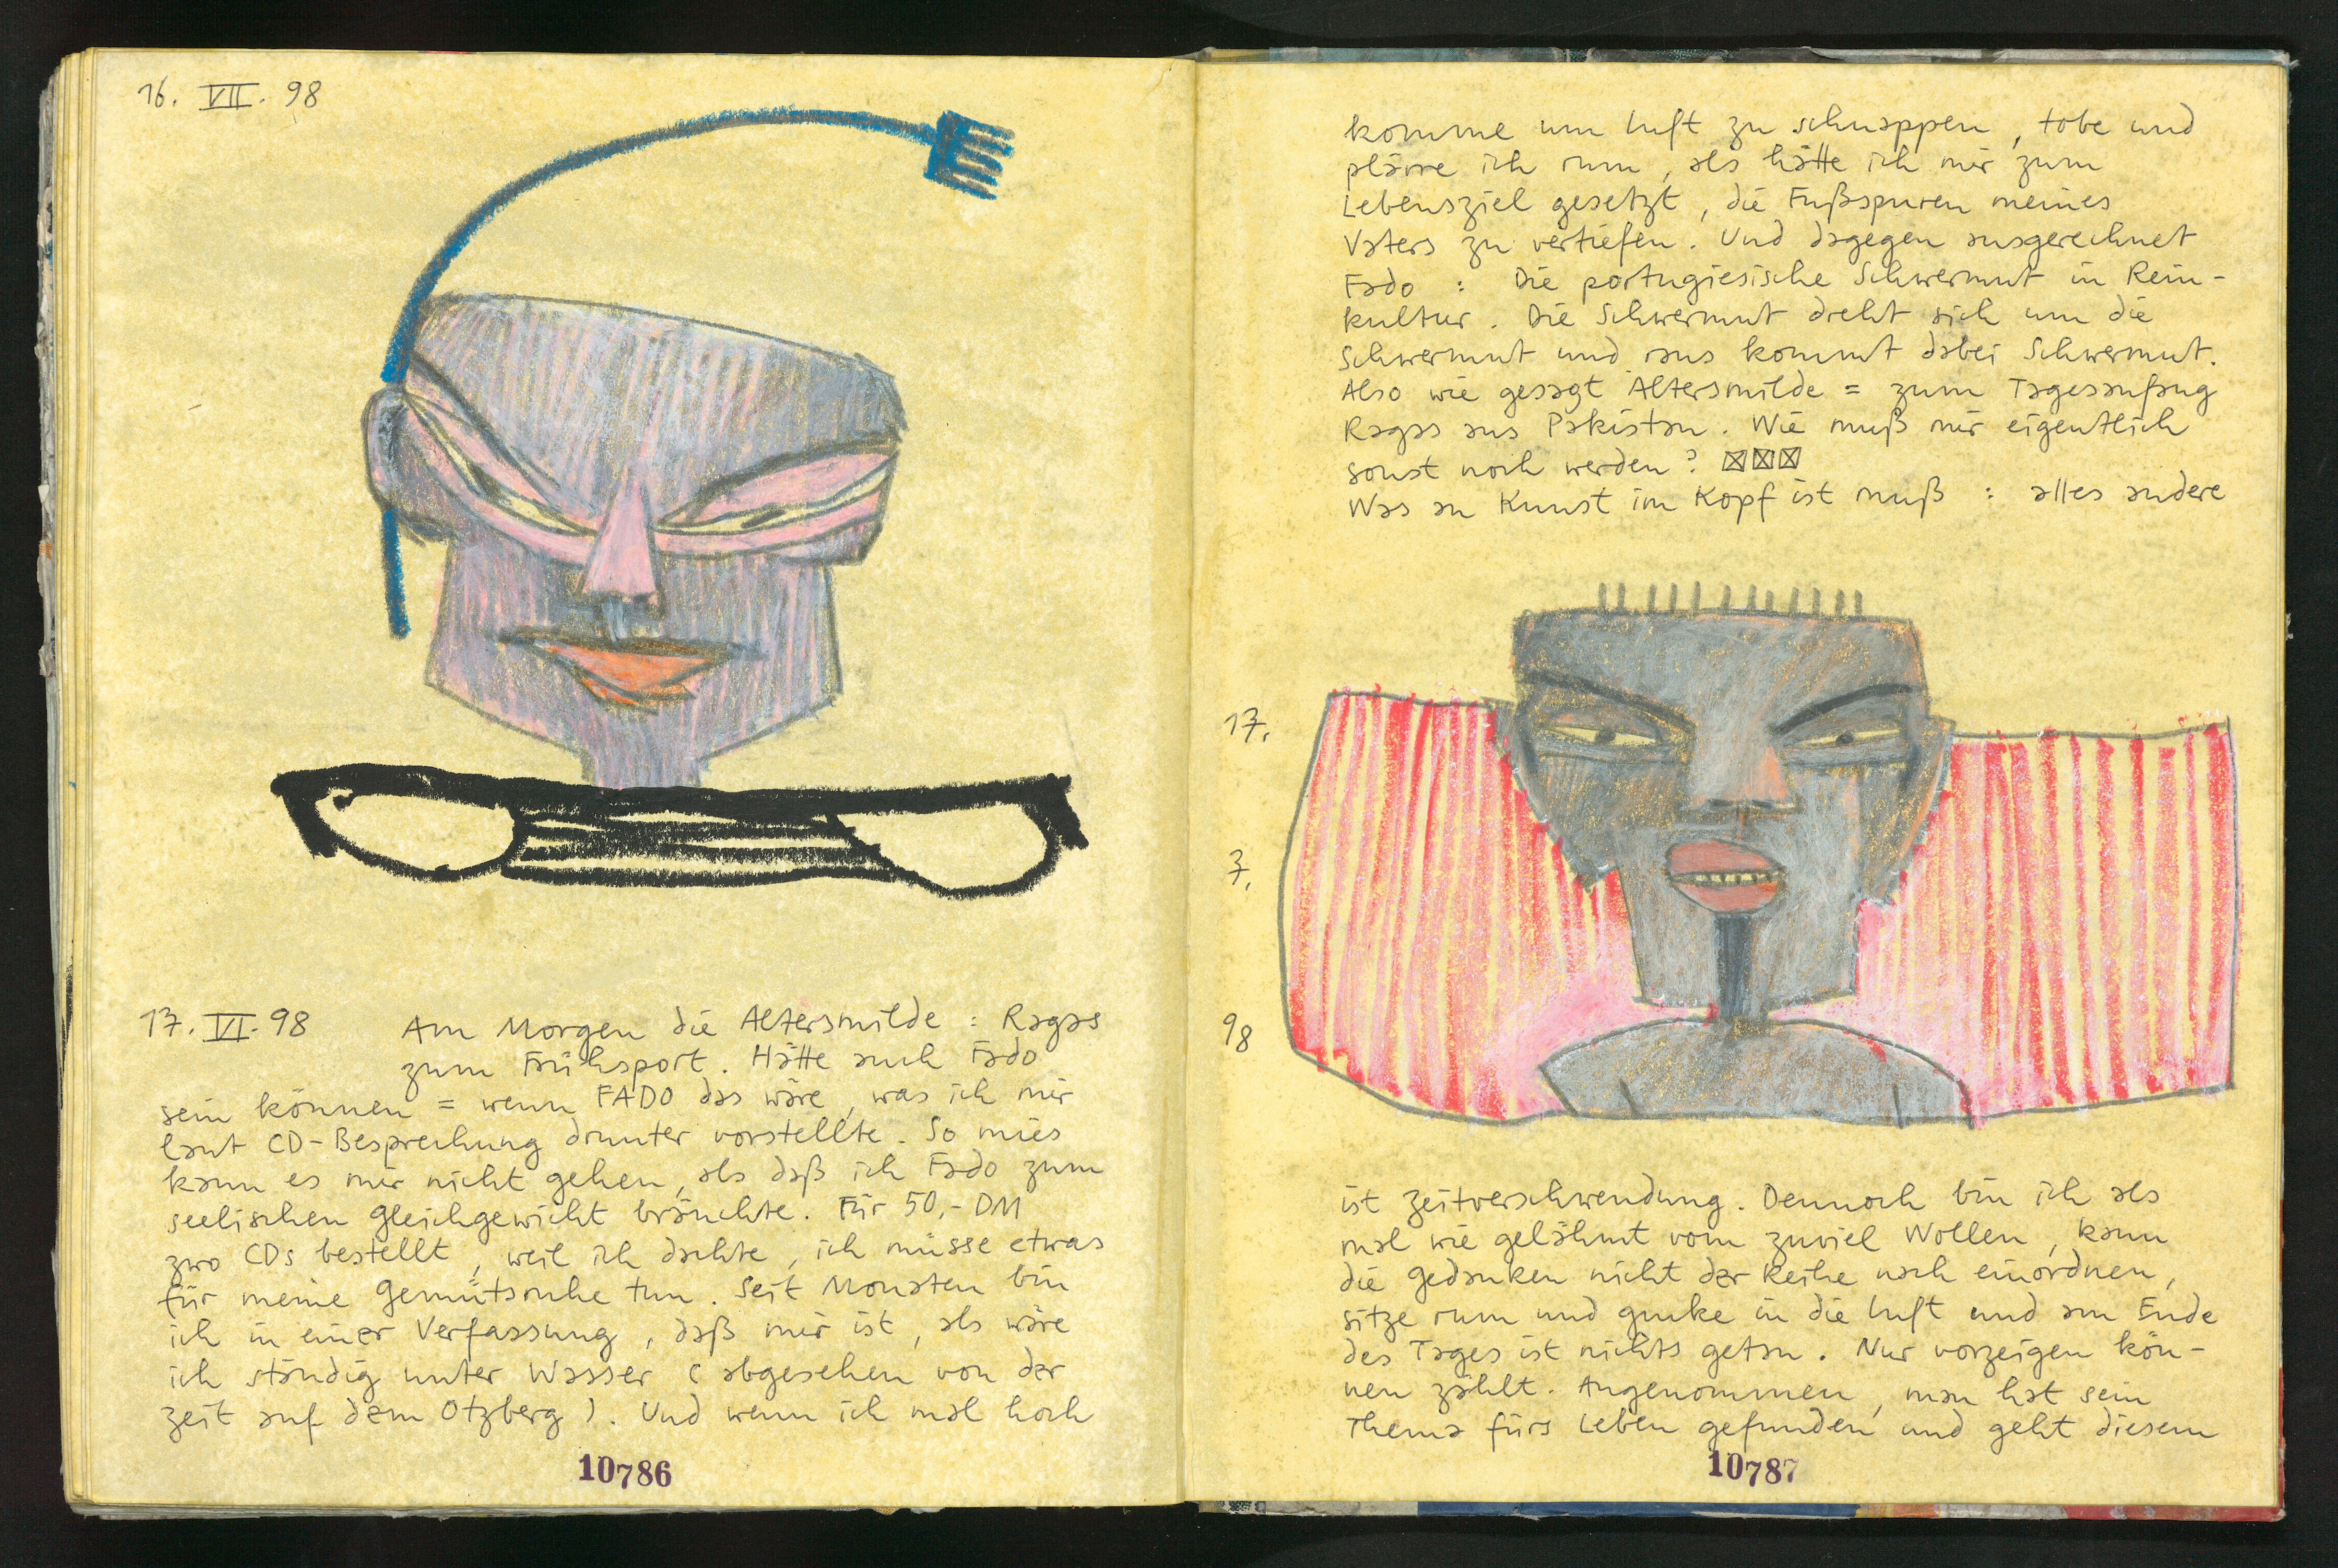 16. VII. 98
17. VI. 98 Am Morgen die Altersmilde : Ragas
zum Frühsport. Hätte auch Fado
sein können = wenn FADO das wäre, was ich mir
laut CD-Besprechung drunter vorstellte. So mies
kann es mir nicht gehen, als daß ich Fado zum
seelischen Gleichgewicht bräuchte. Für 50,- DM
zwo CDs bestellt, weil ich dachte, ich müsse etwas
für meine Gemütsruhe tun. Seit Monaten bin
ich in einer Verfassung, daß mir ist, als wäre
ich ständig unter Wasser (abgesehen von der
Zeit auf dem Otzberg). Und wenn ich mal hoch
10786
komme um Luft zu schnappen, tobe und
plärre ich rum, als hätte ich mir zum
Lebensziel gesetzt, die Fußspuren meines
Vaters zu vertiefen. Und dagegen ausgerechnet
Fado : Die portugiesische Schwermut in Rein-
kultur. Die Schwermut dreht sich um die
Schwermut und raus kommt dabei Schwermut.
Also wie gesagt Altersmilde = zum Tagesanfang
Ragas aus Pakistan. Wie muß mir eigentlich
sonst noch werden?
Was an Kunst im Kopf ist muß : alles andere
17.
7.
98
ist Zeitverschwendung. Dennoch bin ich als
mal wie gelähmt vom zuviel Wollen, kann
die Gedanken nicht der Reihe nach einordnen,
sitze rum und gucke in die Luft und am Ende
des Tages ist nichts getan. Nur vorzeigen kön-
nen zählt. Angenommen, man hat sein
Thema fürs Leben gefunden und geht diesem
10787